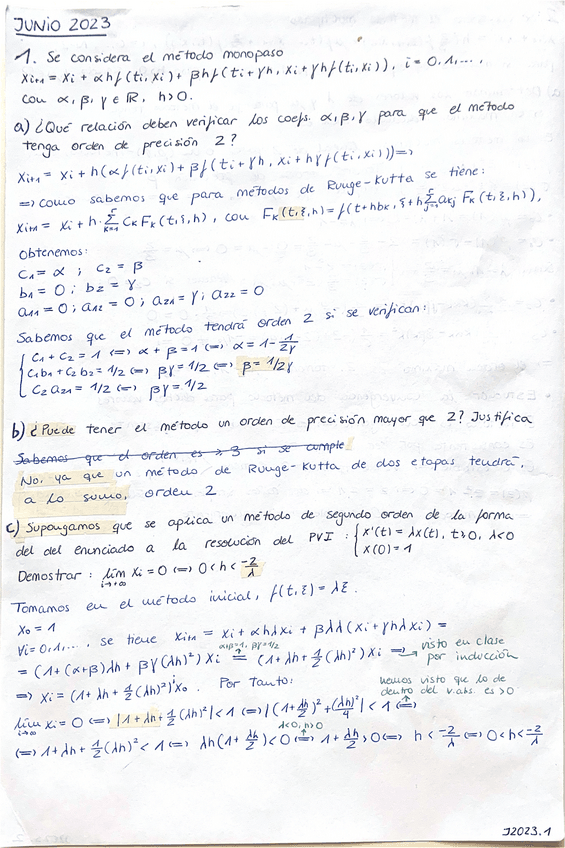 JUNIO 2023
1. Se considera el método monopaso
xi+1 = xi + αhf(ti,xi) + βhf(ti+γh, xi+γhf(ti,xi)), i = 0,1,...,
con α,β,γ ∈ ℝ, h>0.
a) ¿Qué relación deben verificar los coefs. α,β,γ para que el método
tenga orden de precisión 2?
xi+1 = xi + h(αf(ti,xi) + βf(ti+γh, xi+hγf(ti,xi))) =>
=> como sabemos que para métodos de Runge-Kutta se tiene:
xi+1 = xi + h·∑ʳₖ₌₁ CκFκ(t,ξ,h), con Fκ(t,ξ,h)=f(t+hbκ, ξ+h∑ʳⱼ₌₁aκj Fκ(t,ξ,h)),
obtenemos:
C1 = α ; C2 = β
b1 = 0 ; b2 = γ
a11 = 0; a12 = 0; a21 = γ; a22 = 0
Sabemos que el método tendrá orden 2 si se verifican:
{ C1 + C2 = 1 <=> α + β = 1 <=> α = 1 - 1/2γ
C1b1 + C2b2 = 1/2 <=> βγ = 1/2 <=> β = 1/2γ
C2 a21 = 1/2 <=> βγ = 1/2
b) ¿Puede tener el método un orden de precisión mayor que 2? Justifica
Sabemos que el orden es ≥ 3 si se cumple
No, ya que un método de Runge-Kutta de dos etapas tendrá,
a lo sumo, orden 2
c) Supongamos que se aplica un método de segundo orden de la forma
del del enunciado a la resolución del PVI: { x'(t) = λx(t), t>0, λ<0
x(0) = 1
Demostrar: lím i→+∞ xi = 0 <=> 0<h< -2/λ
Tomamos en el método inicial, f(t,ξ) = λξ.
x0 = 1
∀i = 0,1,..., se tiene xi+1 = xi + αhλxi + βhλ(xi + γhλxi) =
α+β=1, βγ=1/2
= (1 + (α+β)λh + βγ(λh)²) xi = (1 + λh + 1/2(λh)²) xi => visto en clase
por inducción
=> xi = (1 + λh + 1/2(λh)²)ⁱx0. Por Tanto:
hemos visto que lo de
dentro del v.abs. es >0
lím i→∞ xi = 0 <=> |1 + λh + 1/2(λh)²| < 1 <=> |(1 + λh/2)² + (λh)²/4| < 1 <=>
λ<0, h>0
<=> 1 + λh + 1/2(λh)² < 1 <=> λh(1 + λh/2) < 0 <=> 1 + λh/2 > 0 <=> h < -2/λ <=> 0<h< -2/λ
J2023.1